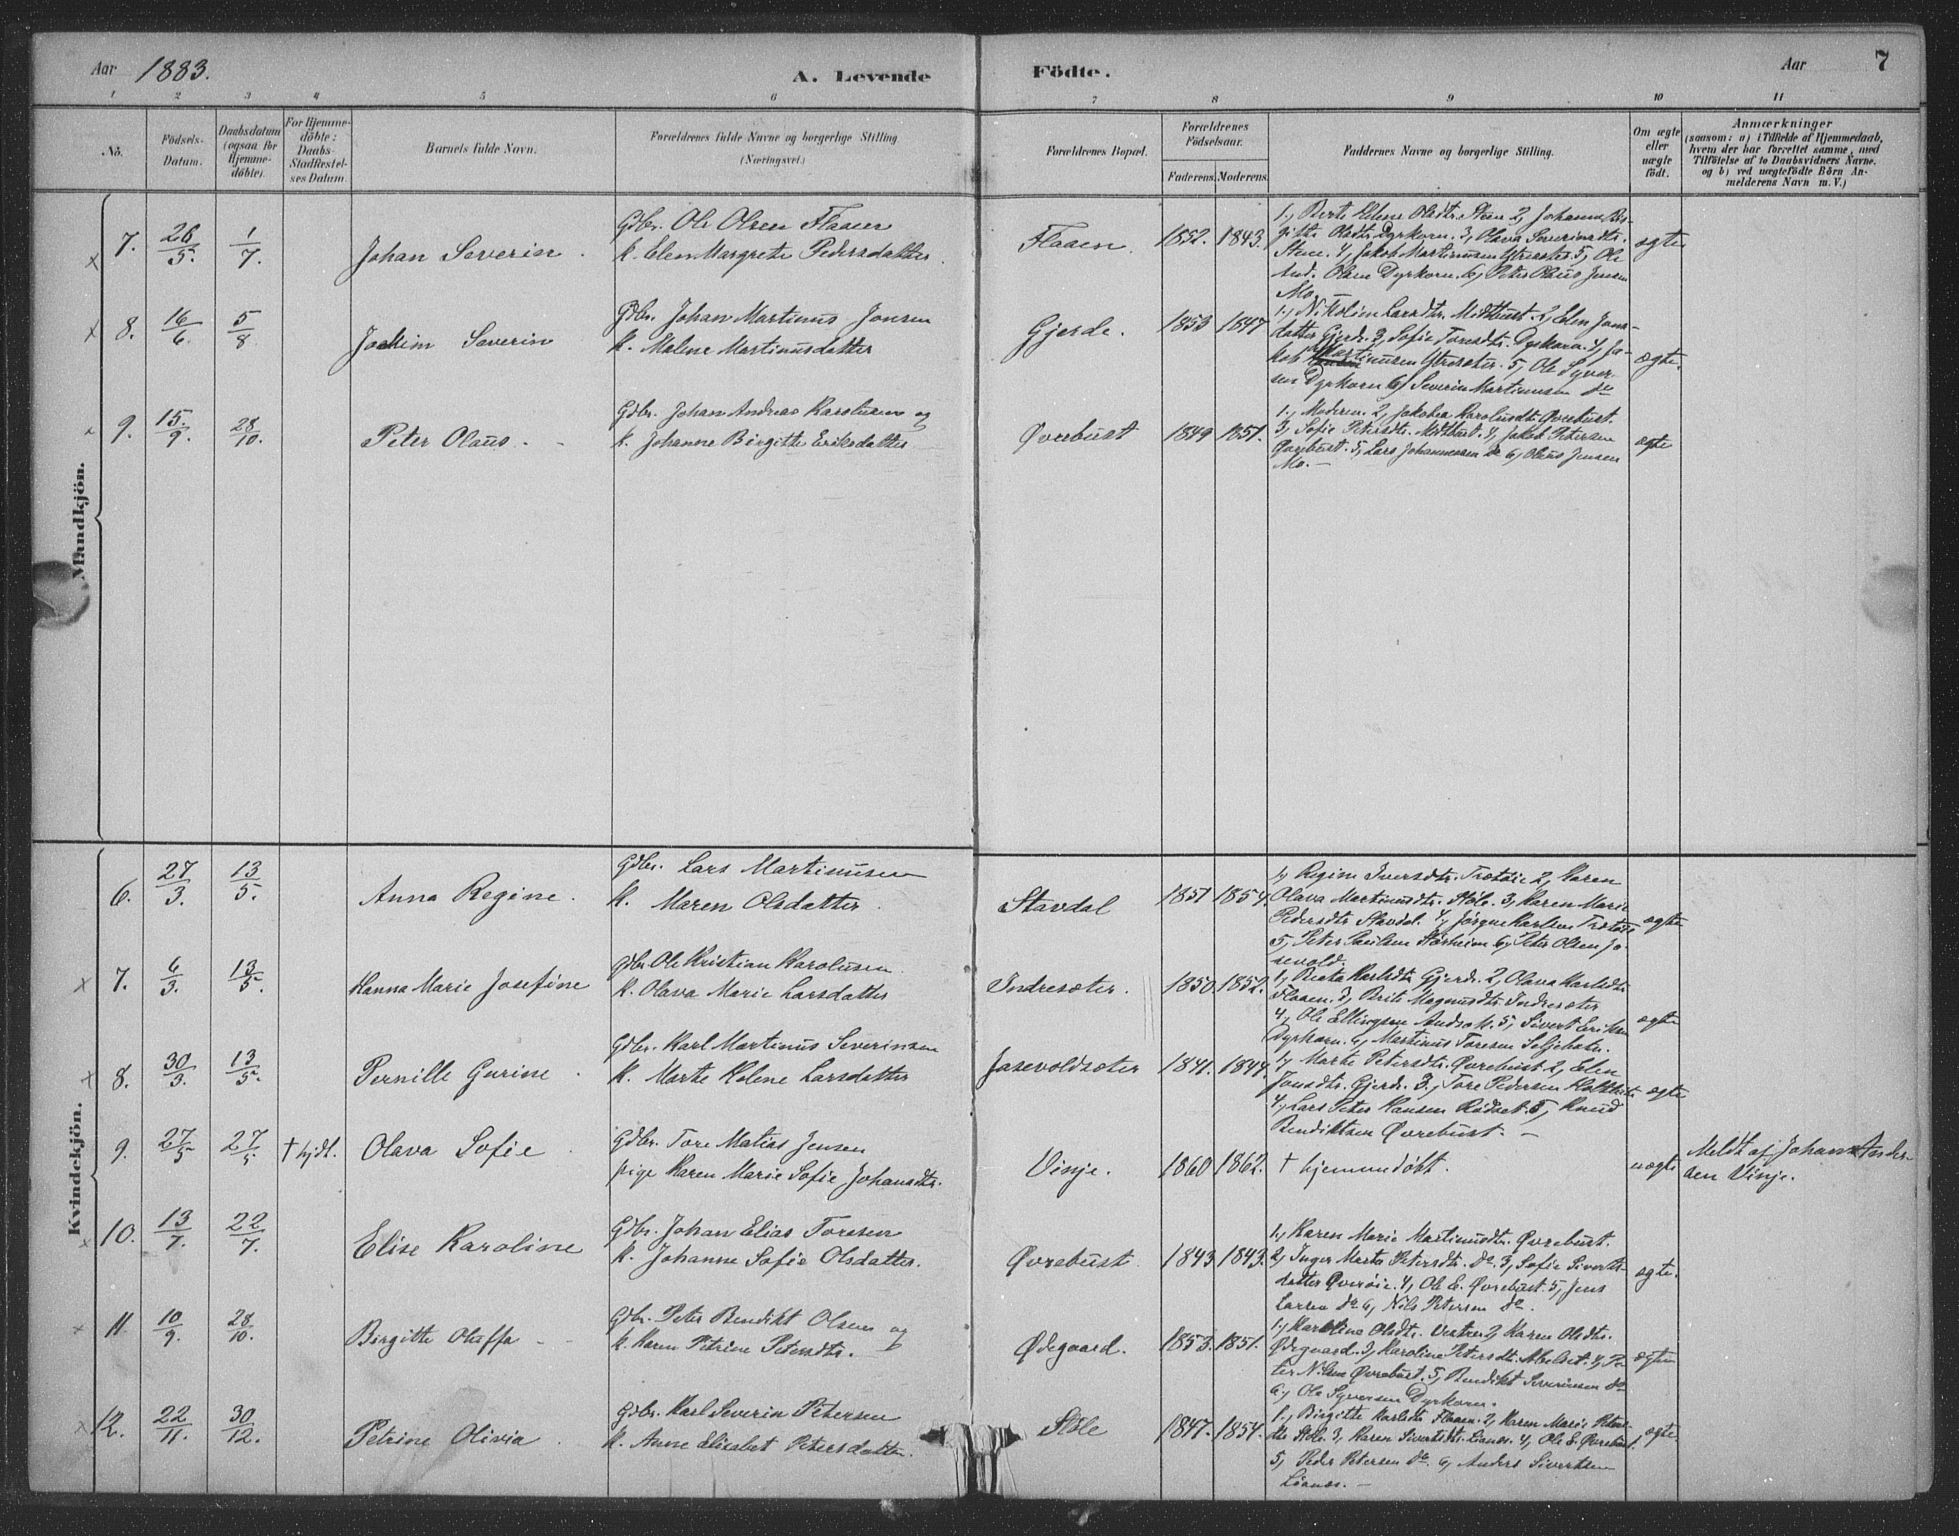 Aar 1883.
A. Levende Födte.
Aar 7
1 2 3 4 5 6 7 8 9 10 11
No.
Födsels-Datum.
Daabsdatum (ogsaa for Hjemme-döbte).
For Hjemme-döbte: Daabs-Stadfæstel-ses Datum.
Barnets fulde Navn.
Forældrenes fulde Navne og borgerlige Stilling (Næringsvei.)
Forældrenes Bopæl.
Forældrenes Födselsaar.
Faderens. Moderens.
Faddernes Navne og borgerlige Stilling.
Om ægte eller uægte födt.
Anmærkninger
(saasom: a) i Tilfælde af Hjemmedaab,
hvem der har forrettet samme, med
Tilföielse af to Daabsvidners Navne.
og b) ved uægtefödte Börn An-
melderens Navn m. V.)
Mandkjön.
7. 26/5 1/7. Johan Severin.
Gdbr. Ole Olsen Flaaen
k. Elen Margrete Pedersdatter.
Flaaen. 1852. 1843.
1, Berte Helene Olsdtr. Stene 2, Johanne Bir-
gitte Olsdtr. Dyrkorn. 3, Olava Severinsdtr.
Stene. 4, Jakob Martinusen Ytresæter. 5, Ole
And. Olsen Dyrkorn. 6, Peter Olaus Jensen
Mo.
ægte
8. 16/6. 5/8 Jochim Severin
Gdbr. Johan Martinus Jonsen
k. Malene Martinusdatter
Gjerde. 1853 1847
1, Nikoline Larsdtr. Midtbust. 2, Elen Jons-
datter Gjerde. 3, Sofie Toresdtr. Dyrkorn. 4, Ja-
kob Martinusen Ytresæter. 5, Ole Syver-
sen Dyrkorn 6, Severin Martinusen do
ægte.
9. 15/9. 28/10. Peter Olaus.
Gdbr. Johan Andreas Karolusen og
k. Johanne Birgitte Eriksdatter
Øvrebust 1849 1851.
1, Moderen. 2, Jakobea Karolusdtr. Øvrebust.
3, Sofie Petersdtr. Midtbust. 4, Jakob Petersen
Øvrebust. 5, Lars Johannessen do 6, Olaus Jensen
Mo. —
ægte
Kvindekjön.
6. 27/3. 13/5. Anna Regine.
Gdbr. Lars Martinusen
k. Maren Olsdatter.
Stavdal 1851 1854.
1, Regine Iversdtr. Trætøie 2, Karen
Olava Martinusdtr. Støle. 3, Karen Marie
Pedersdtr Stavdal. 4, Jørgen Karlsen Trætøie
5, Peter Paulsen Storheim 6, Peter Olsen Ja-
sevold.
ægte
7. 6/3. 13/5. Hanna Marie Josefine
Gdbr. Ole Kristian Karolusen.
k. Olava Marie Larsdatter
Indresæter. 1850. 1852.
1, Beata Karlsdtr Gjerde. 2, Olava Karlsdtr
Flaaen. 3, Brite Magnusdtr Indresæter
4, Ole Ellingsen 5, Sivert Eriksen
Dyrkorn. 6, Martinus Toresen Seljebotn.
ægte
8. 30/3. 13/5. Pernille Gurine.
Gdbr. Karl Martinus Severinsen
k. Marte Helene Larsdatter
Jasevoldsæter 1841. 1844.
1, Marte Petersdtr. Øvrebust 2, Elen
Jonsdtr. Gjerde. 3, Tore Pedersen
4, Lars Peter Hansen Rødset. 5, Knud
Bendiktsen Øvrebust. —
ægte
9. 27/5 27/5 † hjdt. Olava Sofie.
Gdbr. Tore Matias Jensen
pige Karen Marie Sofie Johansdtr.
Vinje. 1860 1862. † hjemmedøbt. uægte
Meldt af Johan Ander-
sen Vinje.
10. 13/7. 22/7. Elise Karoline
Gdbr. Johan Elias Toresen
k. Johanne Sofie Olsdatter.
Øvrebust 1843 1843.
1, Karen Marie Martinusdtr. Øvrebust.
2, Inger Marte Petersdtr. do. 3, Sofie Siverts-
datter Øverøie. 4, Ole E. Øvrebust. 5, Jens
Larsen do 6, Nils Petersen do.
ægte.
11 10/9. 28/10. Birgitte Oluffa
Gdbr. Peter Bendikt Olsen og
k. Karen Petrine Petersdtr.
Ødegaard. 1853. 1851.
1, Karoline Olsdtr. 2, Karen Olsdtr.
Ødegaard. 3, Karoline Petersdtr. Abelset. 4, Pe-
ter Nilsen Øvrebust. 5, Bendikt Severinsen do
6, Ole Syversen Dyrkorn.
ægte
12. 22/11. 30/12. Petrine Olivia
Gdbr. Karl Severin Petersen
k. Anne Elisabet Petersdatter.
Støle 1847. 1854.
1, Birgitte Karlsdtr Flaaen. 2, Karen Marie Peters-
dtr Støle. 3, Karen Sivertsdtr. Lianes. 4, Ole E. Øvrebust.
5, Peder Petersen do. 6, Anders Sivertsen
Lianes. —
ægte.